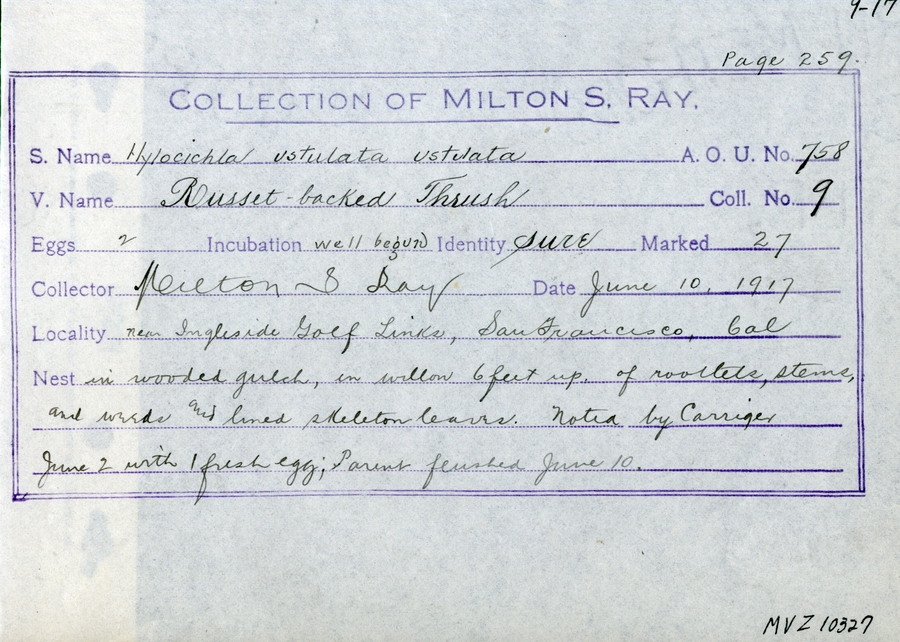 9-17
Page 259.
COLLECTION OF MILTON S. RAY.
S. Name Hylocichla ustulata ustulata A. O. U. No. 758
V. Name Russet-backed Thrush Coll. No. 9
Eggs 2 Incubation well begun Identity sure Marked 27
Collector Milton S Ray Date June 10, 1917
Locality near Ingleside Golf Links, San Francisco, Cal
Nest in wooded gulch, in willow 6 feet up. of rootlets, stems,
and weeds and lined skeleton leaves. Noted by Carriger
June 2 with 1 fresh egg; Parent flushed June 10.
MVZ 10327